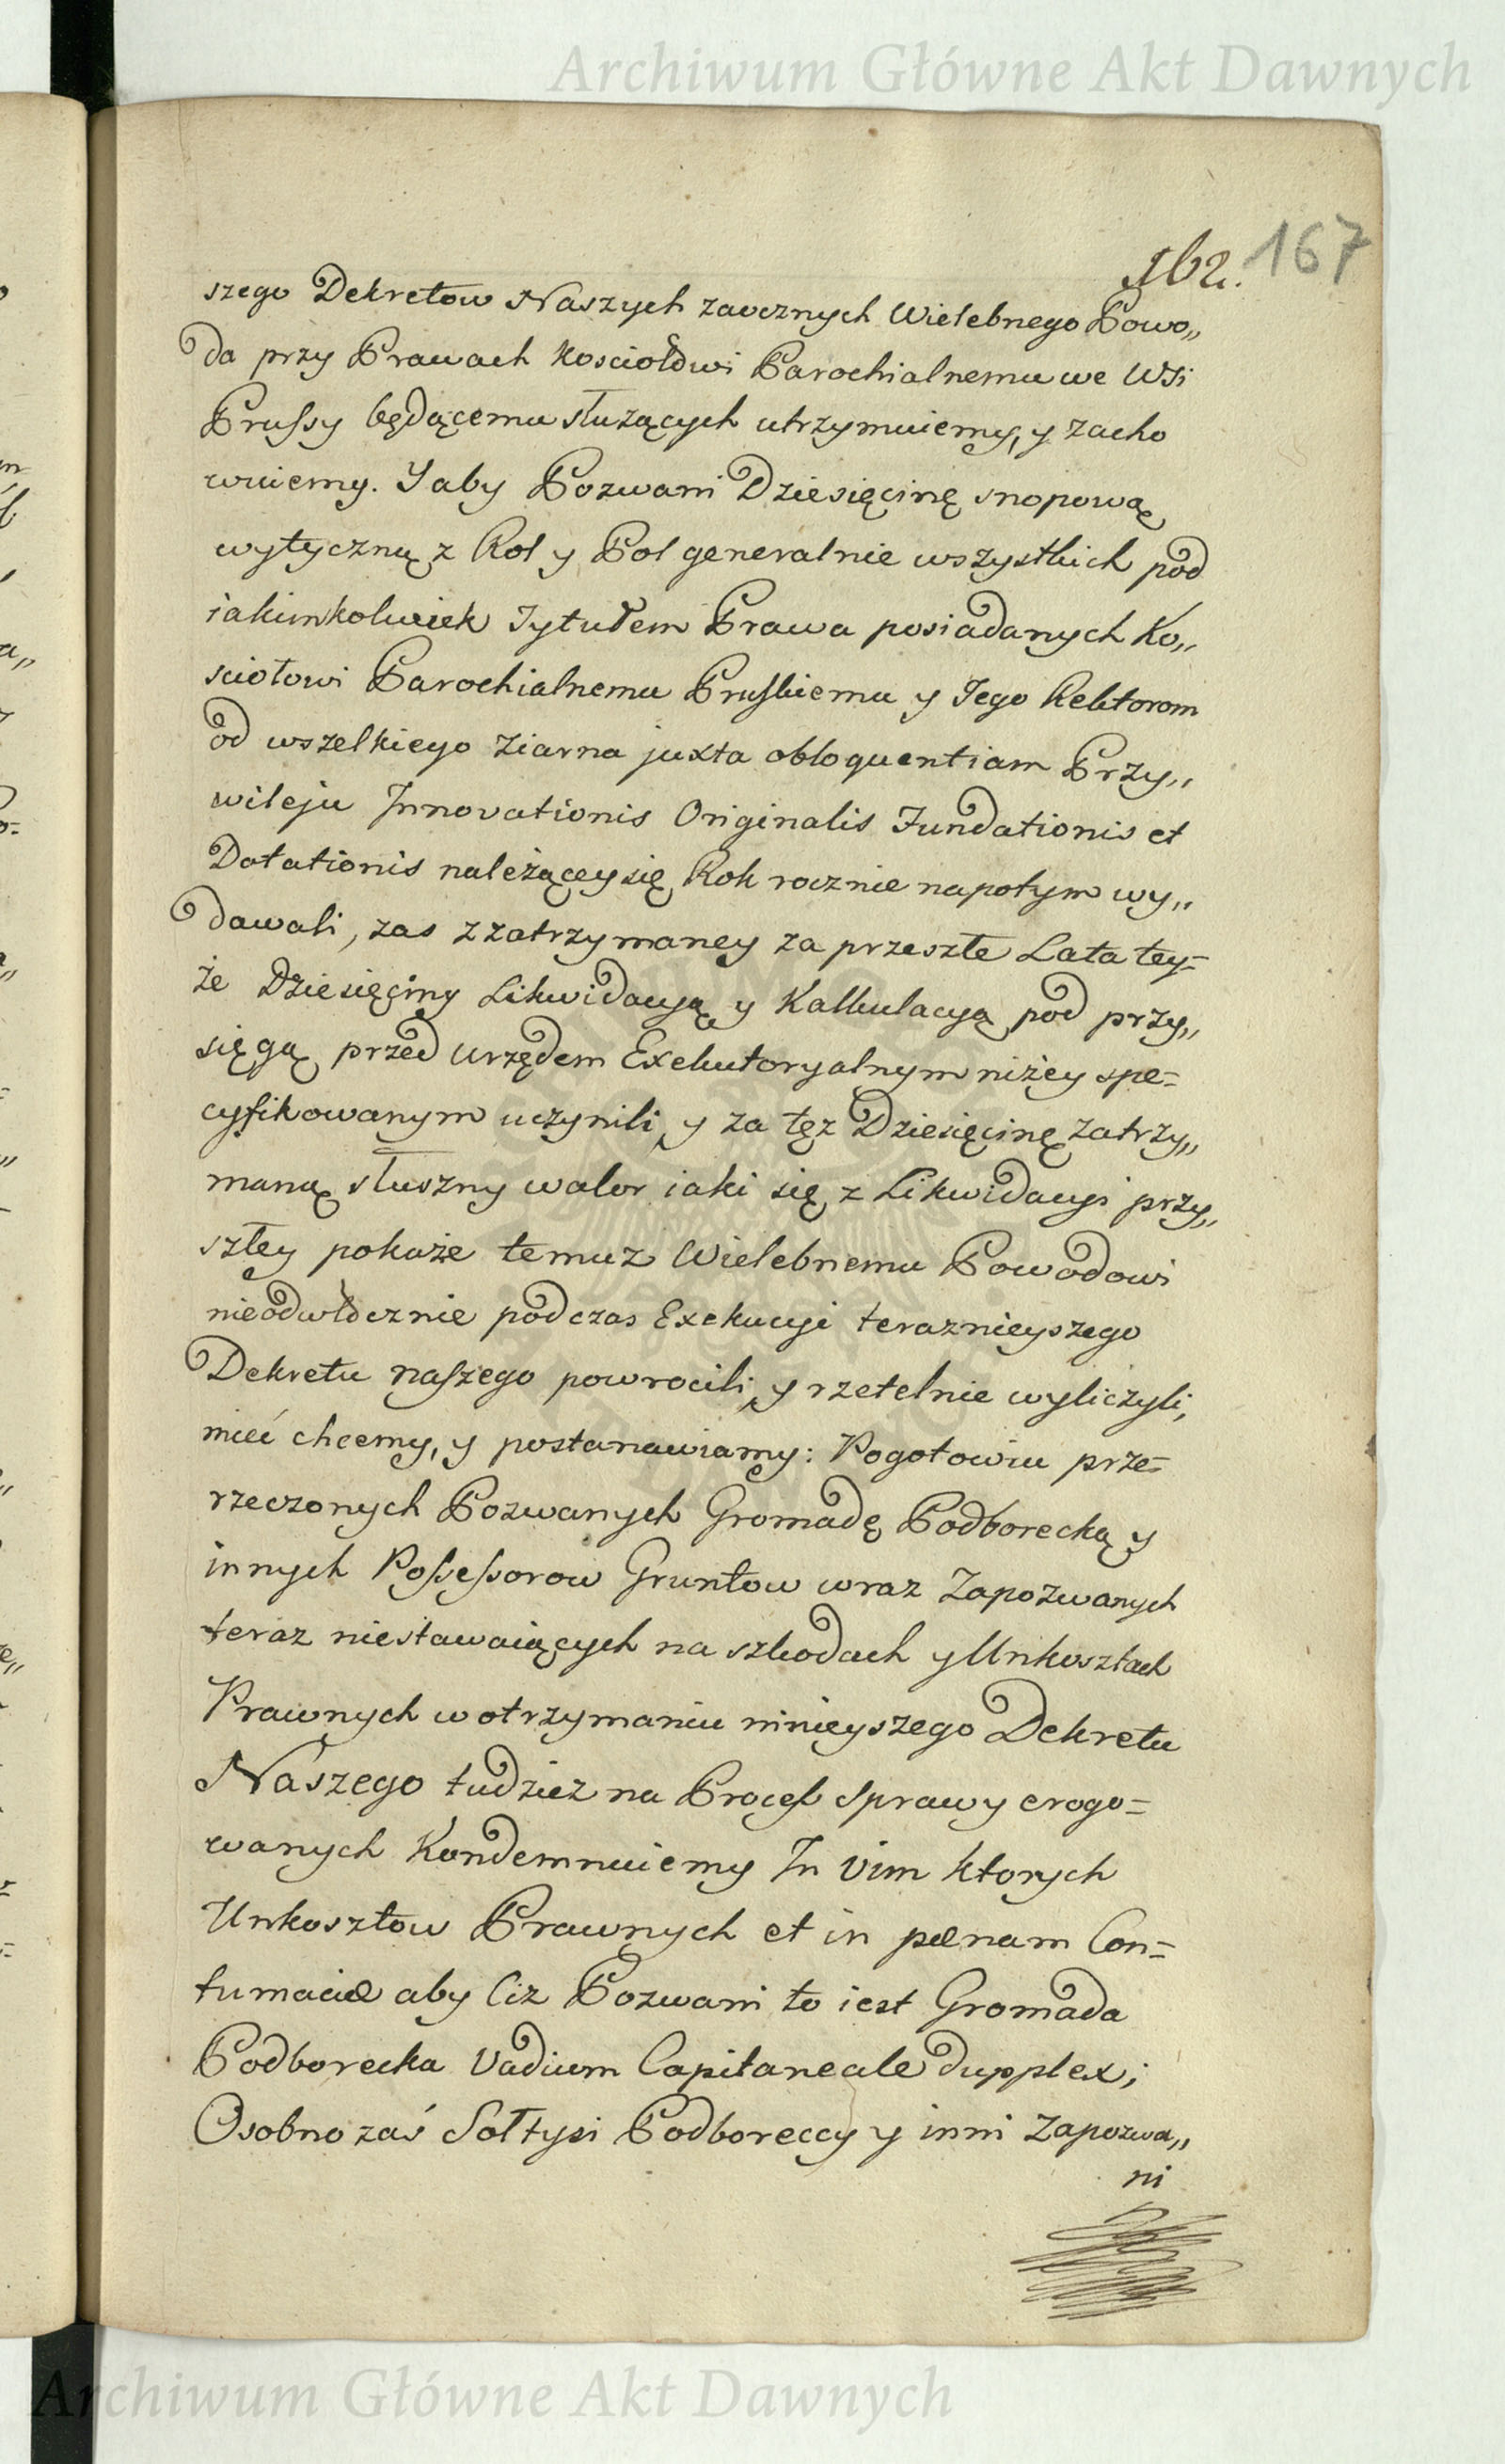 Archiwum Główne Akt Dawnych
162. 167
szego Dekretow Naszych zaocznych Wielebnego Powo„
da przy Prawach Kosciołowi Parochialnemu we Wsi
Prussy będącemu służących utrzymuiemy, y zacho
wuiemy. Y aby Pozwani Dziesięcinę snopową
wytyczną z Rol y Pol generalnie wszystkich pod
iakimkolwiek Tytułem Prawa posiadanych Ko„
sciołowi Parochialnemu Pruskiemu y Jego Rektorom
od wszelkiego ziarna juxta obloquentiam Przy„
wileju Innovationis Originalis Fundationis et
Dotationis należącey się Rok rocznie napotym wy„
dawali, zas z zatrzymaney za przeszłe Lata tey=
że Dziesięciny Likwidacyą y Kalkulacyą pod przy„
sięgą przed Urzędem Exekutoryalnym niżey spe=
cyfikowanym uczynili, y za tęz Dziesięcinę zatrzy„
maną słuszny walor iaki się z Likwidacyi przy„
szłey pokaże temuz Wielebnemu Powodowi
nieodwłocznie podczas Exekucyi teraznieyszego
Dekretu naszego powrocili, y rzetelnie wyliczyli,
mieć chcemy, y postanawiamy: Pogotowiu prze=
rzeczonych Pozwanych Gromadę Podborecką y
innych Possessorow Gruntow wraz Zapozwanych
teraz niestawaiących na szkodach y Unkosztach
Prawnych w otrzymaniu ninieyszego Dekretu
Naszego tudziez na Process Sprawy erogo=
wanych Kondemnuiemy In Vim ktorych
Unkosztow Prawnych et in pænam Con=
tumaciæ aby Ciz Pozwani to iest Gromada
Podborecka Vadium Capitaneale dupplex;
Osobno zaś Sołtysi Podboreccy y inni Zapozwa„
ni
Archiwum Główne Akt Dawnych